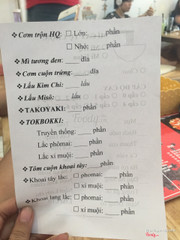 • Cơm trộn HQ: □ Lớn: ___ phần
□ Nhỏ: ___ phần
• Mì tương đen: ___ dĩa
• Cơm cuộn trứng: ___ dĩa
• Lẩu Kim Chi: ___ lẩu
• Lẩu Misô: ___ lẩu
• TAKOYAKI: ___ phần
• TOKBOKKI:
Truyền thống: ___ phần
Lắc phômai: ___ phần
Lắc xí muội: ___ phần
• Tôm cuộn khoai tây: ___ phần
• Khoai tây lắc: □ phomai: ___ phần
□ xí muội: ___ phần
• Khoai lang lắc: □ phomai: ___ phần
□ xí muội: ___ phần